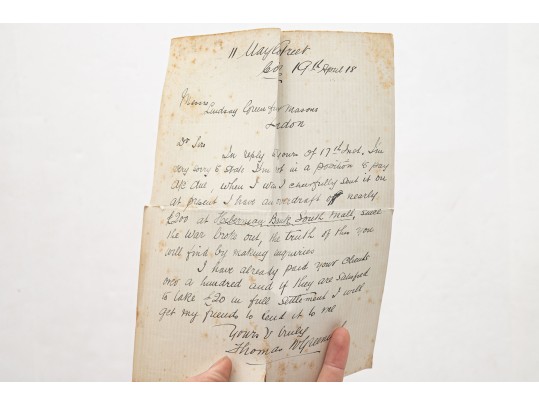 11 May Street
Cor 19th April 18
Messrs
Lindsay Greer & Masons
London
Dr Sirs
In reply yours of 17th Inst. I'm
very sorry to state I'm not in a position to pay
a/c due, when I was I cheerfully sent it on
at present I have an overdraft of nearly
£200 at Hibernian Bank South Mall, since
the War broke out, the truth of this you
will find by making inquiries
I have already paid your Clients
over a hundred and if they are satisfied
to take £20 in full settlement I will
get my friends to lend it to me
Yours V truly
Thomas